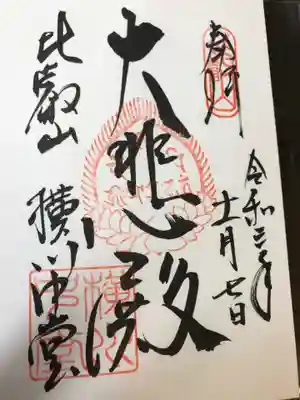 奉拝
令和三年
十一月七日
大悲殿
比叡山
横川中堂